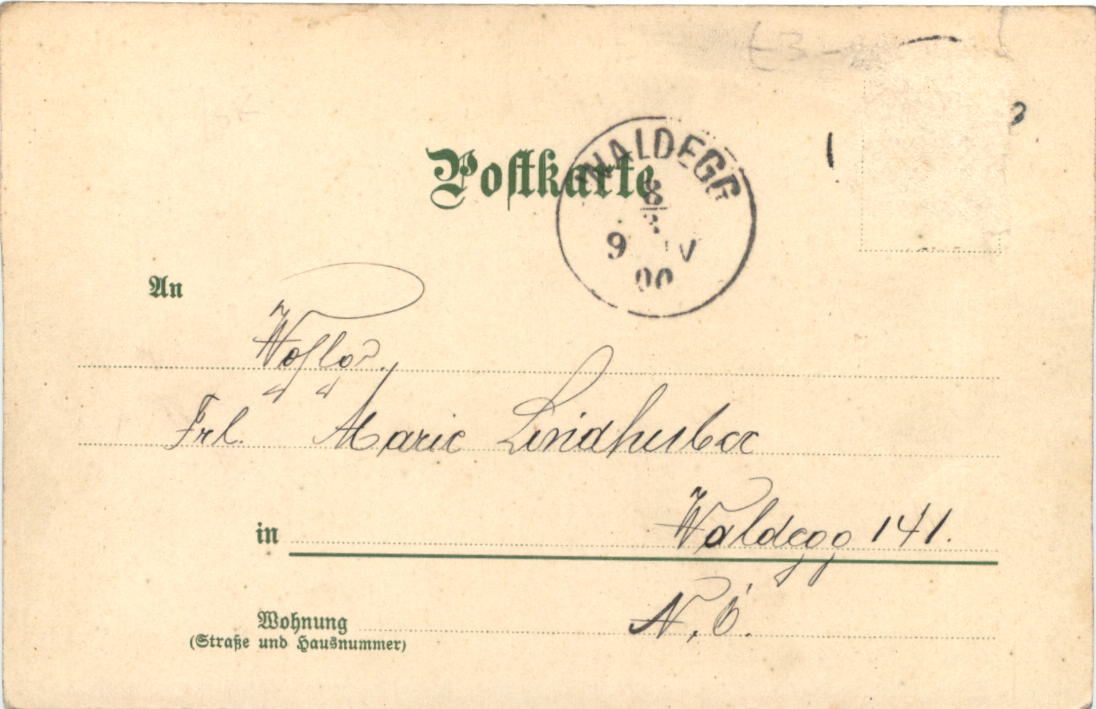 Postkarte
WALDEGG
8
9 V
00
An
Frl. Marie Lindhuber
in Waldegg 141.
Wohnung N. Ö.
(Straße und Hausnummer)